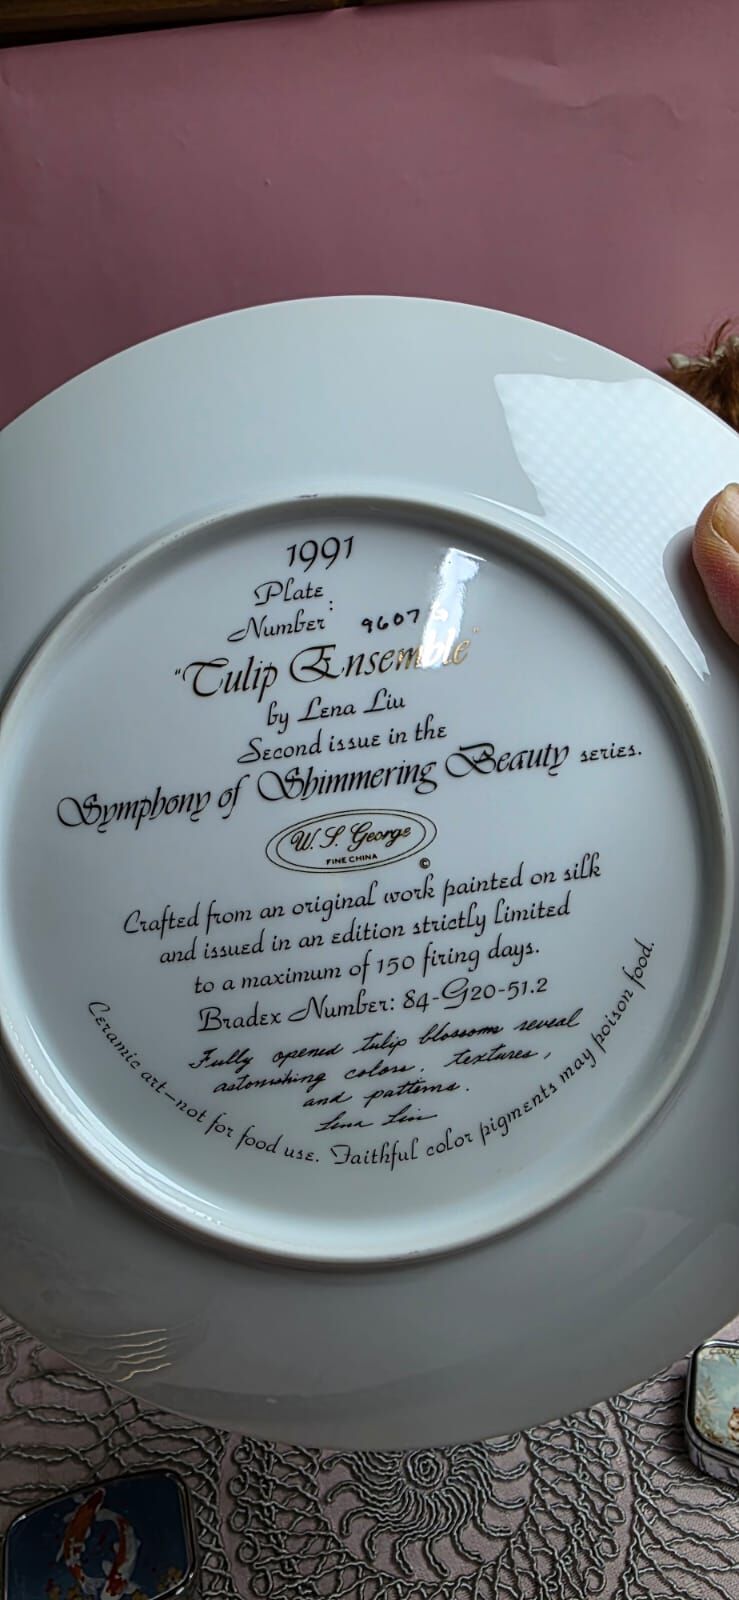 1991
Plate
Number:
"Tulip Ensemble"
by Lena Liu
Second issue in the
Symphony of Shimmering Beauty series.
W. S. George
FINE CHINA
©
Crafted from an original work painted on silk
and issued in an edition strictly limited
to a maximum of 150 firing days.
Bradex Number: 84-G20-51.2
Fully opened tulip blossoms reveal
astonishing colors, textures,
and patterns.
Lena Liu
Ceramic art—not for food use. Faithful color pigments may poison food.